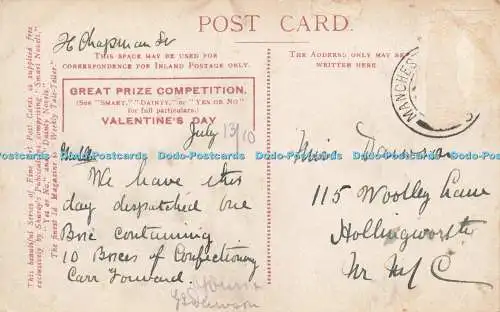 POST CARD.
H Chapman Sr
THIS SPACE MAY BE USED FOR
CORRESPONDENCE FOR INLAND POSTAGE ONLY.
THE ADDRESS ONLY MAY BE
WRITTEN HERE
MANCHES
GREAT PRIZE COMPETITION.
(See "SMART," "DAINTY," or "YES OR NO"
for full particulars.)
VALENTINE'S DAY
July 13/10
We have this
day despatched one
Box containing
10 Boxes of Confectionery
Carr Forward.
Yours
Miss Dawson
115 Woolley Lane
Hollingworth
Nr M/C
This beautiful Series of Fine Art Post Cards is supplied free
exclusively by Shurey's Publications, comprising "Smart Novels,"
"Yes or No," and "Dainty Novels."
The Finest 1d. Magazine Weekly Tale-Teller.
Dodo-Postcards Dodo-Postcards Dodo-Postcards Dodo-Postcards Dodo-Postcards Dodo-Postcards